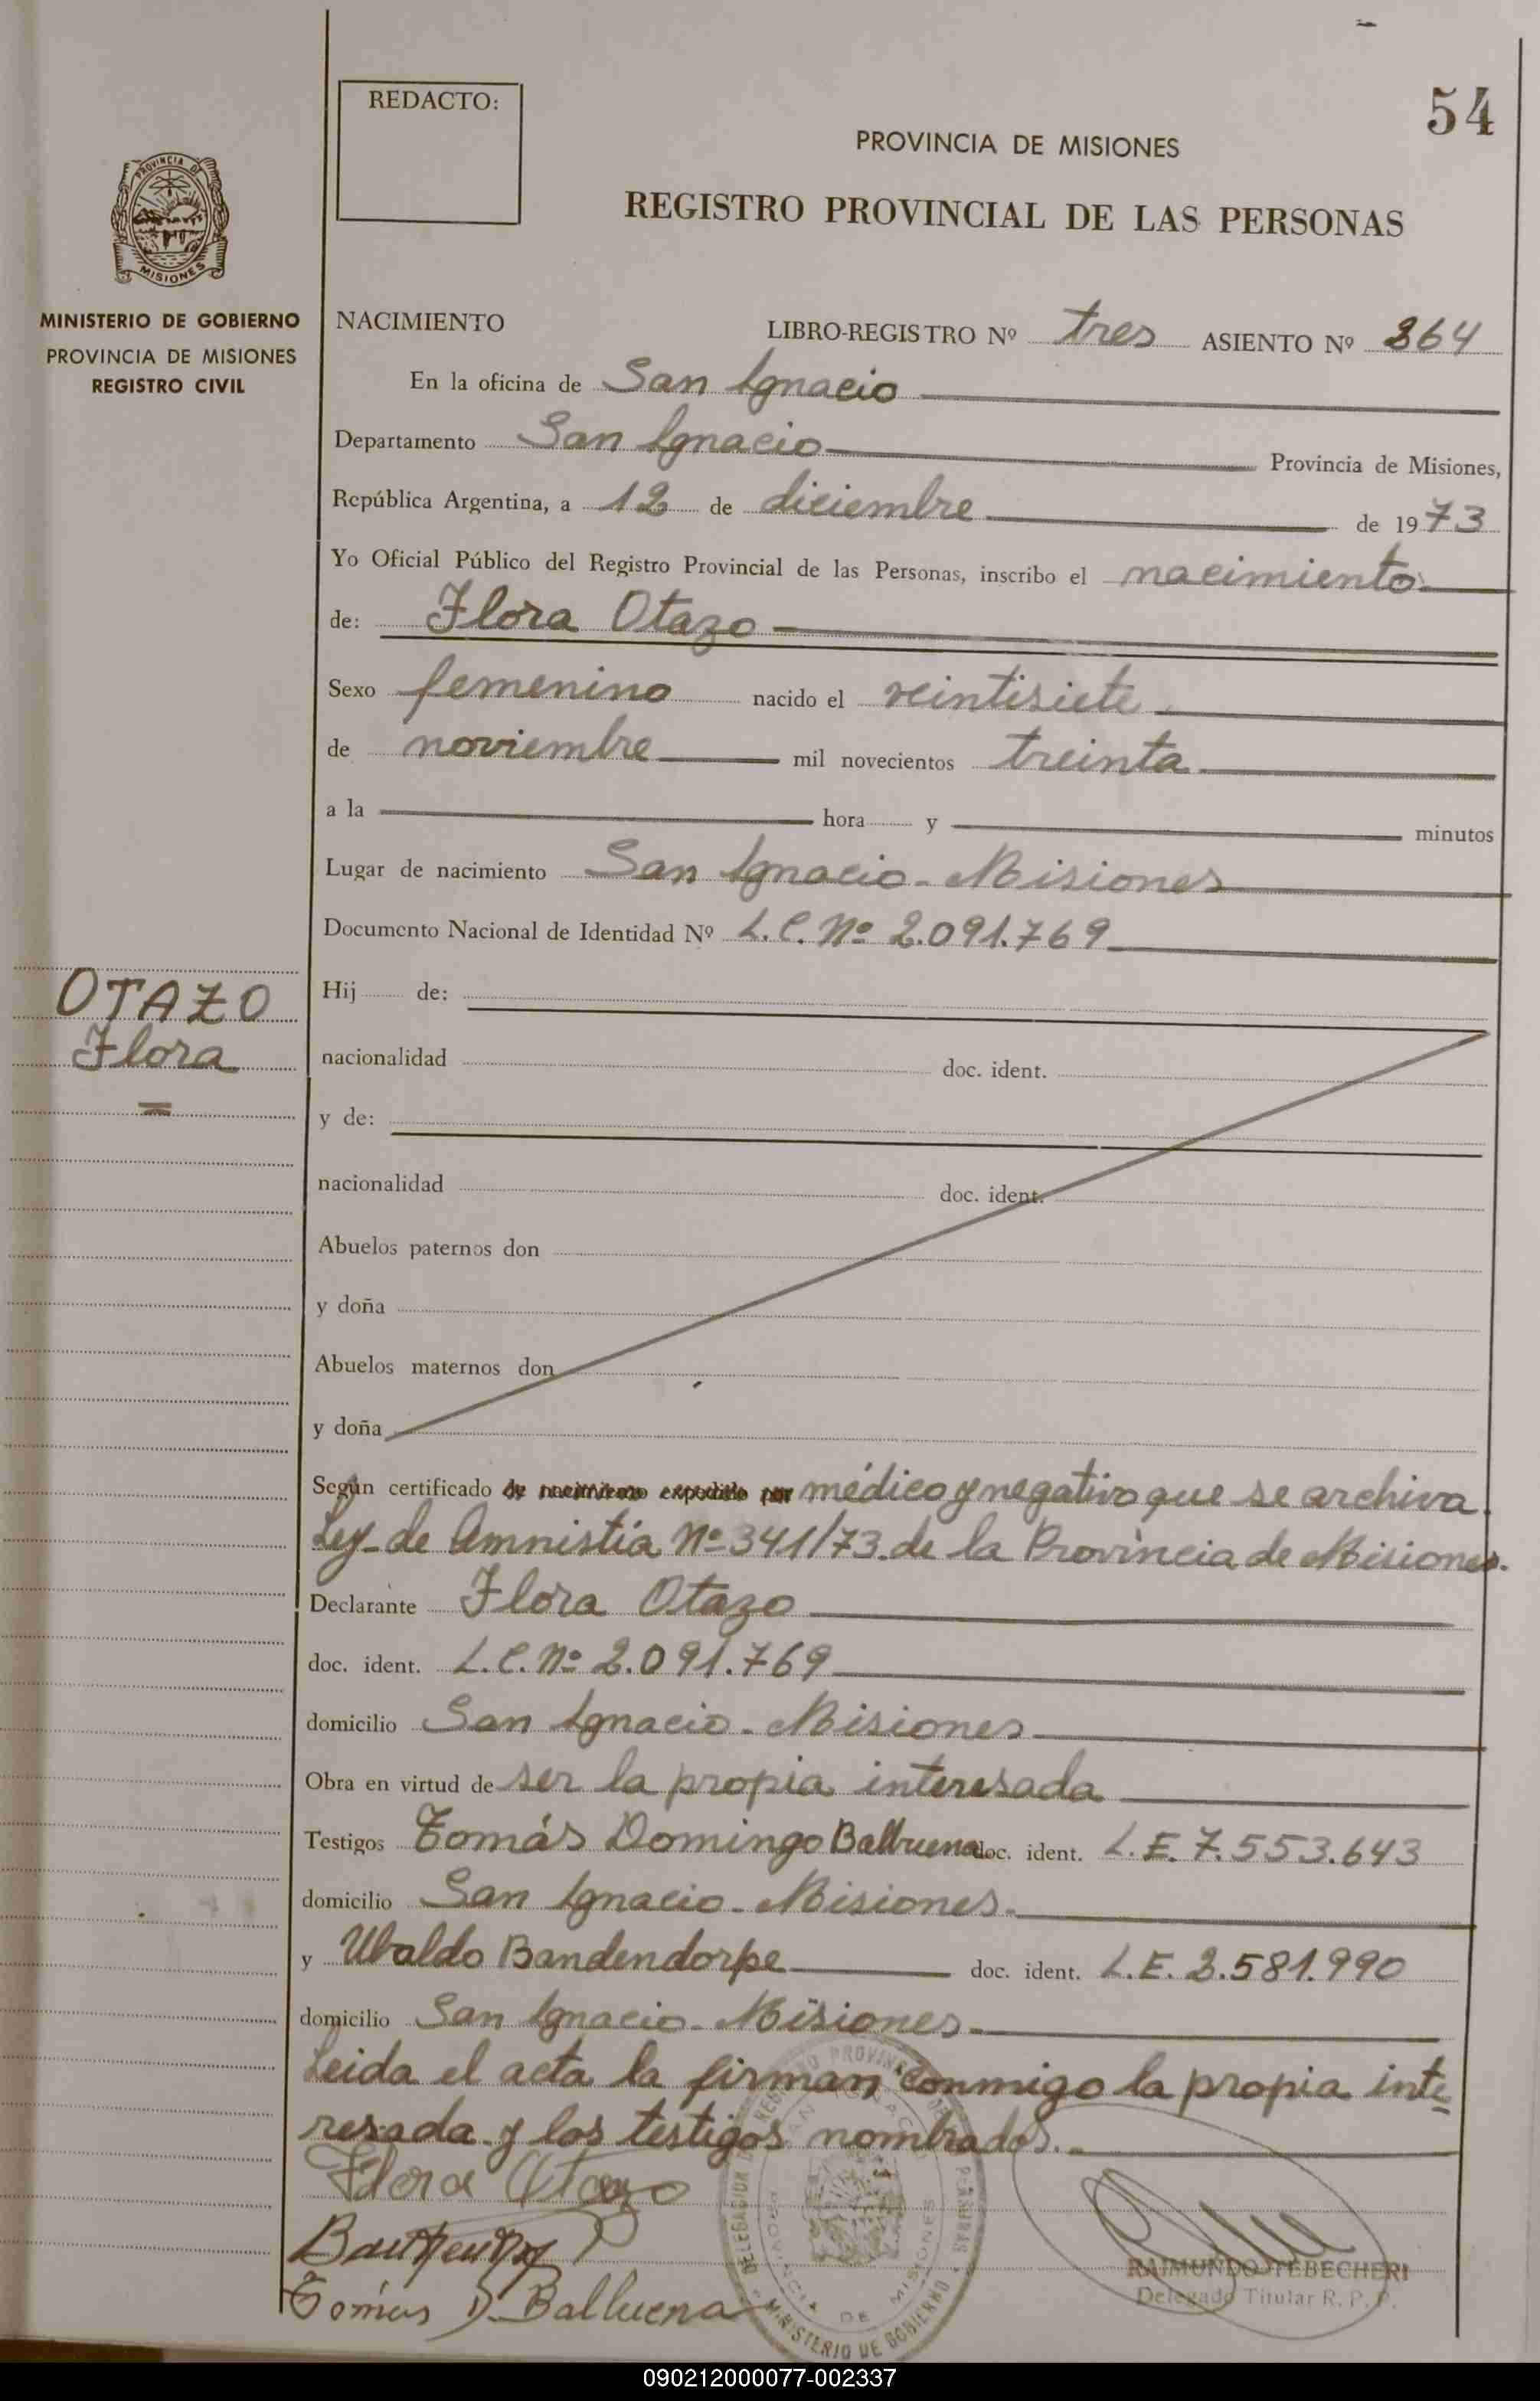 54
REDACTO:
PROVINCIA DE MISIONES
REGISTRO PROVINCIAL DE LAS PERSONAS
PROVINCIA DE
MISIONES
MINISTERIO DE GOBIERNO
PROVINCIA DE MISIONES
REGISTRO CIVIL
NACIMIENTO LIBRO-REGISTRO Nº tres ASIENTO Nº 364
En la oficina de San Ignacio
Departamento San Ignacio Provincia de Misiones,
República Argentina, a 12 de diciembre de 1973
Yo Oficial Público del Registro Provincial de las Personas, inscribo el nacimiento
de: Flora Otazo
Sexo femenino nacido el veintisiete
de noviembre mil novecientos treinta
a la hora y minutos
Lugar de nacimiento San Ignacio - Misiones
Documento Nacional de Identidad Nº L.C. Nº 2.091.769
OTAZO
Flora
Hij de:
nacionalidad doc. ident.
y de:
nacionalidad doc. ident.
Abuelos paternos don
y doña
Abuelos maternos don
y doña
Según certificado de nacimiento expedido por médico y negativo que se archiva.
Ley de Amnistía Nº 341/73 de la Provincia de Misiones.
Declarante Flora Otazo
doc. ident. L.C. Nº 2.091.769
domicilio San Ignacio - Misiones
Obra en virtud de ser la propia interesada
Testigos Tomás Domingo Balbuena doc. ident. L.E. 7.553.643
domicilio San Ignacio - Misiones.
y Ubaldo Bandendorpe doc. ident. L.E. 3.581.990
domicilio San Ignacio - Misiones.
Leida el acta la firman conmigo la propia inte
resada y los testigos nombrados.
Flora Otazo
Tomás D. Balbuena
RAIMUNDO TEBECHERI
Delegado Titular R. P. P.
MINISTERIO DE GOBIERNO
PROVINCIA DE MISIONES
090212000077-002337